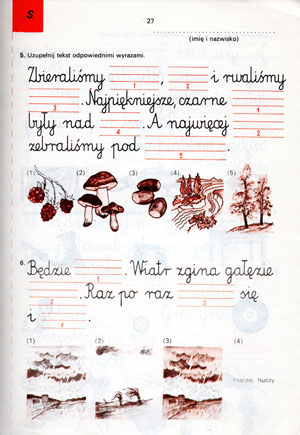 s
27
(imię i nazwisko)
5. Uzupełnij tekst odpowiednimi wyrazami.
Zbieraliśmy , i rwaliśmy
1 2
. Najpiękniejsze, czarne
3 1
były nad . A najwięcej
4 2
zebraliśmy pod .
5
(1) (2) (3) (4) (5)
6.
Będzie . Wiatr zgina gałęzie
1
. Raz po raz się
2 3
i .
4
(1) (2) (3) (4)
inaczej: huczy